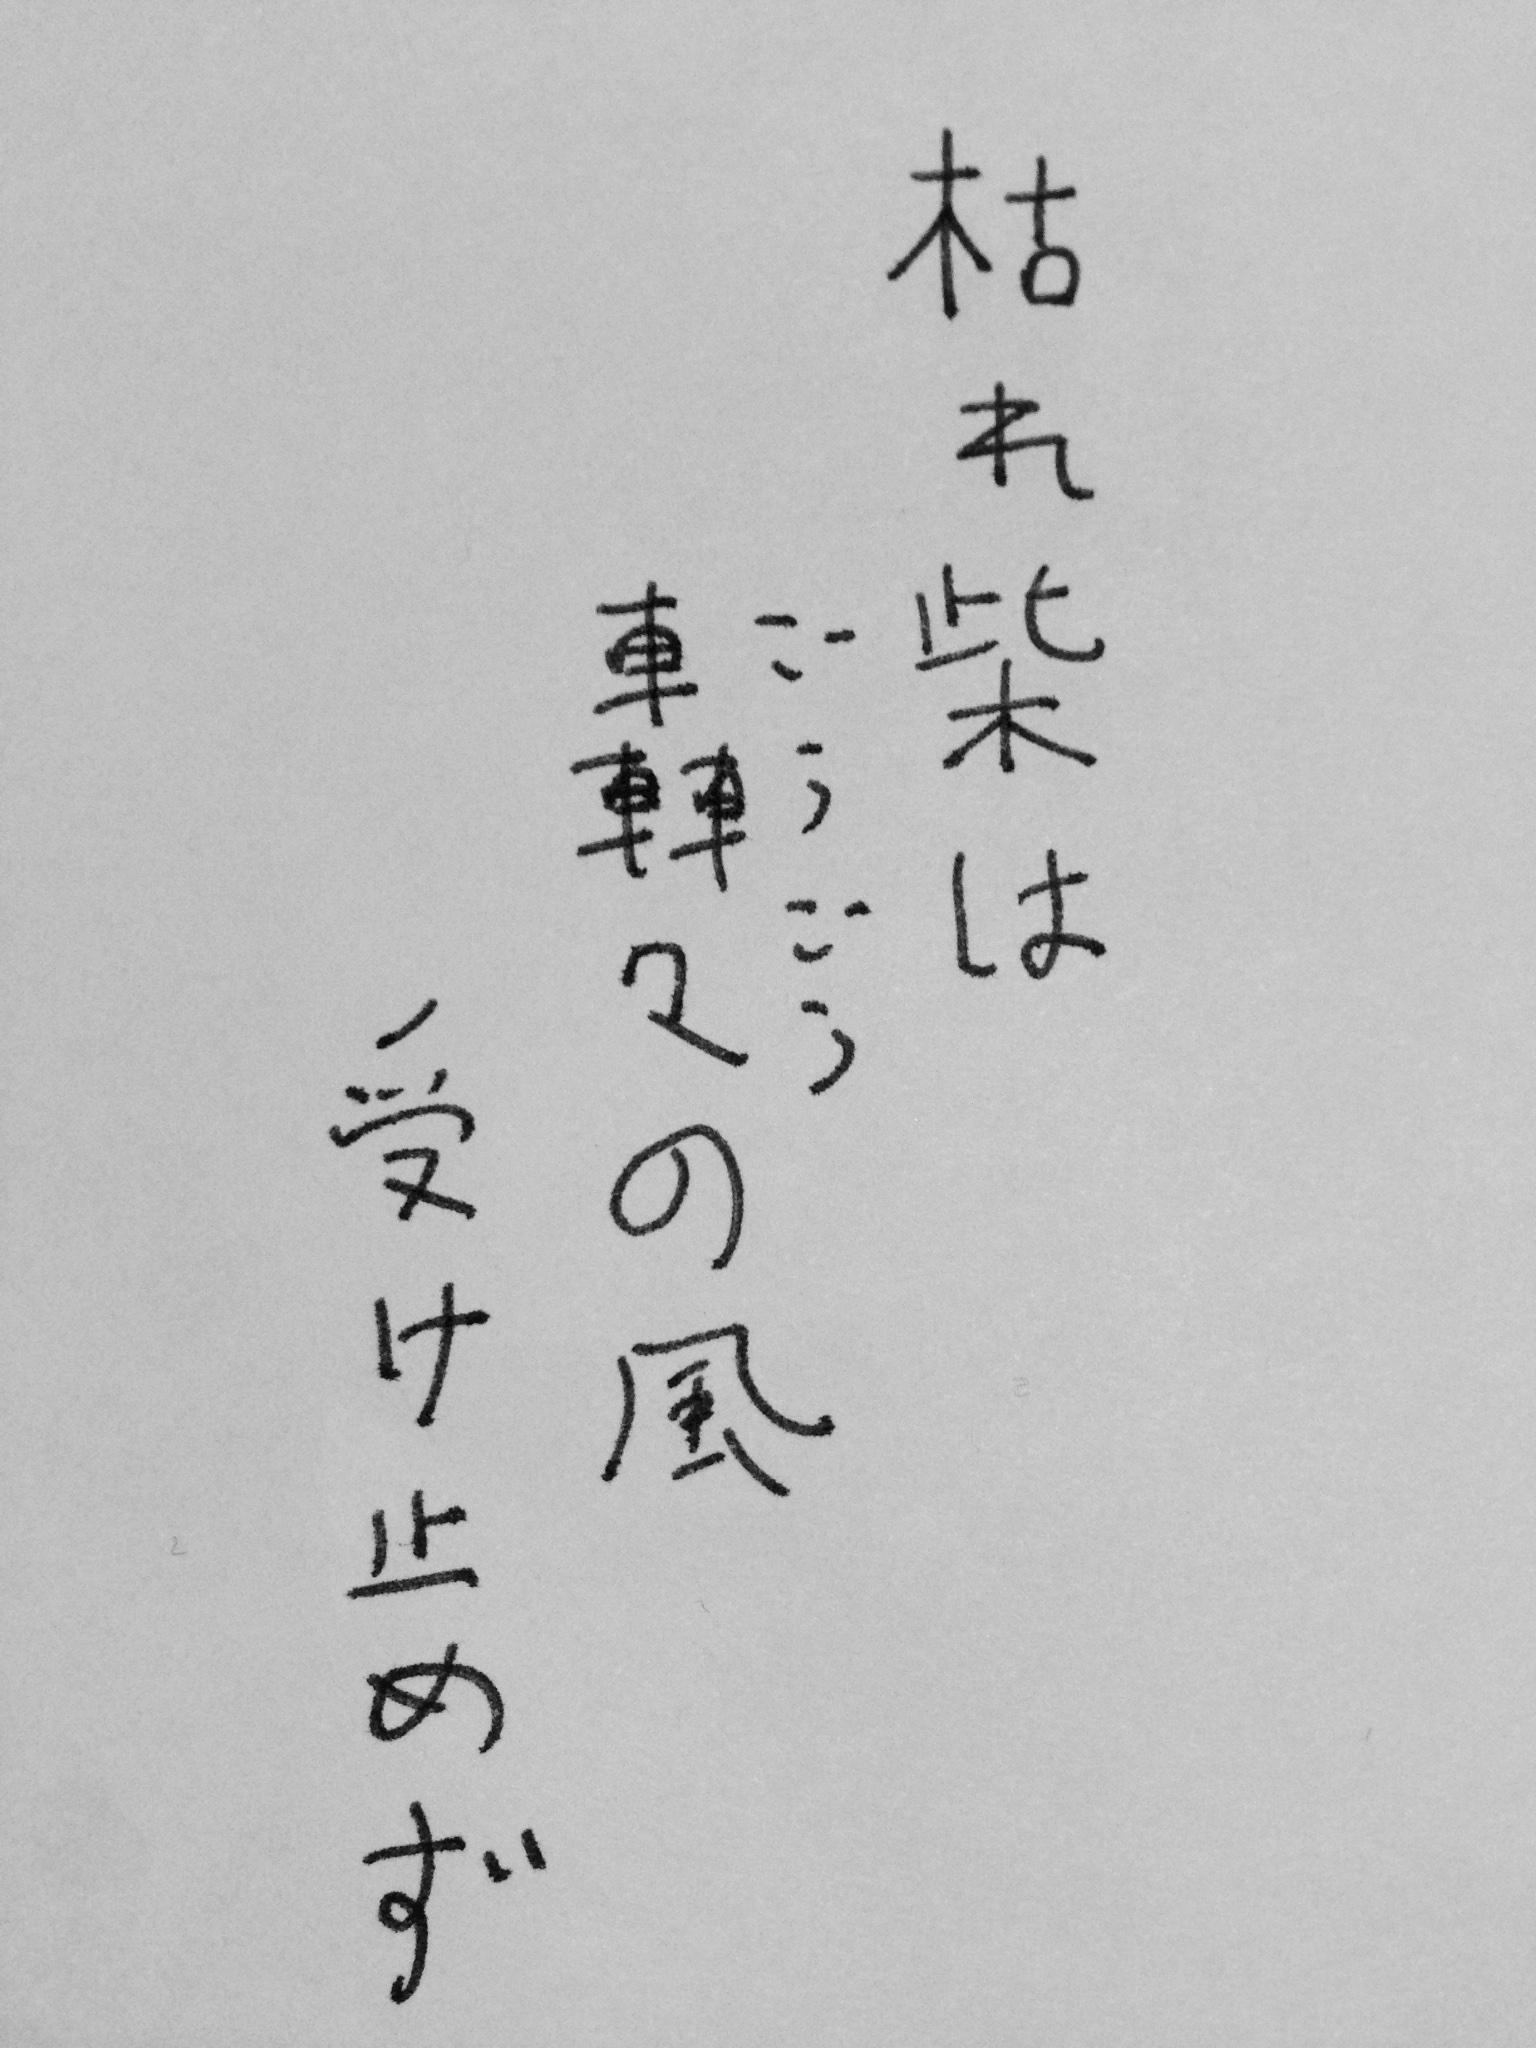 枯れ柴は
轟々の風
ごうごう
受け止めず